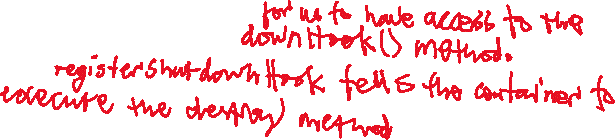 for us to have access to the
downHook() method.
registerShutdownHook tells the container to
execute the destroy method